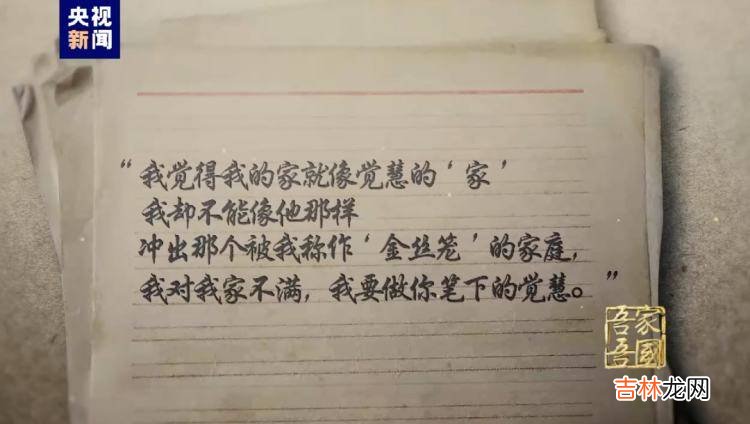 央视
新闻
“我觉得我的家就像觉慧的‘家’
我却不能像他那样
冲出那个被我称作‘金丝笼’的家庭，
我对我家不满，我要做你笔下的觉慧。”
吾家
吾國
吉林龙网